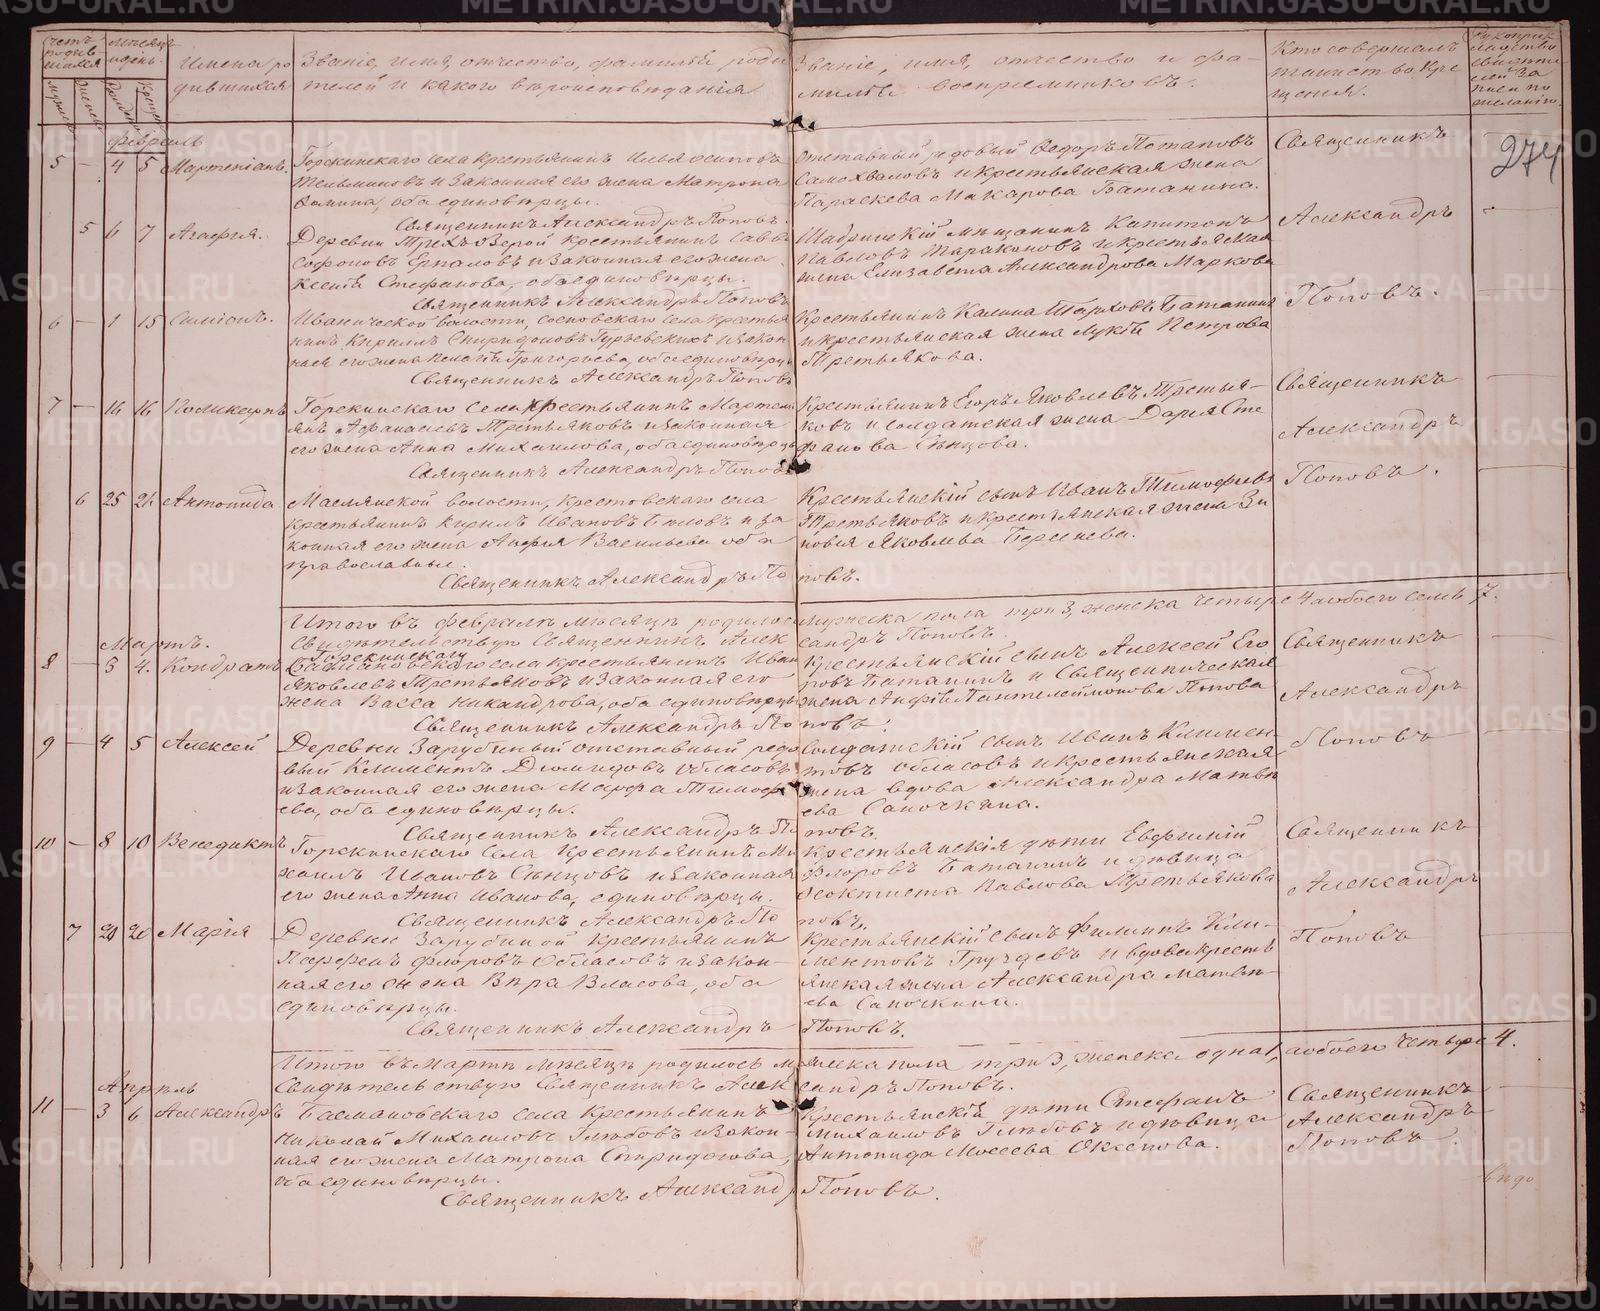 Счетъ родив-шихся
Мѣсяцъ и день.
Имена ро
дившихся
Званіе, имя, отчество, фамилія роди
телей и какого вѣроисповѣданія
Званіе, имя, отчество и фа-
милія воспріемниковъ.
Кто совершалъ
таинство Кре
щенія.
февраль
274
5 — 4 5 Мартеніанъ.
Горскинскаго села крестьянинъ Илья Осиповъ
и законная его жена Матрона
обаединовѣрцы.
Священникъ Александръ Поповъ.
Отставный рядовый Ѳедоръ Потаповъ
Самохваловъ и крестьянская жена
Параскева Макарова Батанина.
Священникъ
5 6 7 Агафія.
Деревни Трехъ Озерой крестьянинъ Савва
Софоновъ и законная его жена
Ксенія Стефанова, оба единовѣрцы.
Священникъ Александръ Поповъ
Шадринскій мѣщанинъ Капитонъ
Павловъ Таракановъ и крестьянская
жена Елизавета Александрова Маркова
Александръ
6 — 1 15 Симеонъ.
Иванической волости, Сосновскаго села крестья
нинъ Кириллъ Спиридоновъ Гурьевскихъ и закон
ная его жена Григорьева, оба единовѣрцы
Священникъ Александръ Поповъ
Крестьянинъ Калина Батанинъ
и крестьянская жена Лукія Петрова
Третьякова.
Поповъ.
7 — 16 16 Поликарпъ
Горскинскаго села крестьянинъ Мартемі
янъ Афанасьевъ Третьяковъ и законная
его жена Анна Михаилова, оба единовѣрцы
Священникъ Александръ Поповъ
Крестьянинъ Егоръ Яковлевъ Третья-
ковъ и солдатская жена Дарія Сте
фанова Сѣнцова.
Священникъ
Александръ
6 25 26 Антонида
Маслянской волости, Крестовскаго села
крестьянинъ Кирилъ Ивановъ Бѣловъ и за
конная его жена Васильева оба
православные.
Священникъ Александръ По
повъ.
Крестьянскій сынъ Иванъ Тимофѣевъ
Третьяковъ и крестьянская жена Зи
новія Яковлева Берсенева.
Поповъ.
Итого въ февралѣ мѣсяцѣ родилось мужеска пола три 3, женска четыре 4 а обоего семь 7.
Свидѣтельствую Священникъ Александръ Поповъ.
Мартъ.
8 — 3 4. Кондратъ
Горскинскаго
села крестьянинъ Иванъ
Яковлевъ Третьяковъ и законная его
жена Васса Никандрова, оба единовѣрцы
Священникъ Александръ По
повъ.
Крестьянскій сынъ Алексей Его
ровъ Батанинъ и Священническая
жена Анфія Пантелеимонова Попова
Священникъ
Александръ
9 — 4 5 Алексей
Деревни Зарубиный отставный рядо
вый Климентъ Діомидовъ Обласовъ
и законная его жена Марфа Тимофе
ева, оба единовѣрцы.
Священникъ Александръ По
повъ.
Солдатскій сынъ Иванъ Климен
товъ Обласовъ и крестьянская
жена вдова Александра Матвѣ
ева Сапочкина.
Поповъ
10 — 8 10 Венедиктъ
Горскинскаго села крестьянинъ Ми
хаилъ Ивановъ Сѣнцовъ и законная
его жена Анна Иванова, единовѣрцы.
Священникъ Александръ По
повъ.
Крестьянскія дѣти Евфимій
Флоровъ Батанинъ и дѣвица
Феоктиста Павлова Третьякова
Священникъ
Александръ
7 20 20 Марія
Деревни Зарубиной крестьянинъ
Парфенъ Флоровъ Обласовъ и закон-
ная его жена Вѣра Власова, оба
единовѣрцы.
Священникъ Александръ
Поповъ.
Крестьянскій сынъ Филипъ Кли-
ментовъ Груздевъ и вдова кресть
янская жена Александра Матвѣ-
ева Сапочкина.
Поповъ
Итого въ мартѣ мѣсяцѣ родилось мужеска пола три 3, женска одна 1, а обоего четыре 4.
Свидѣтельствую Священникъ Александръ Поповъ.
Апрѣль
11 — 3 6 Александръ
Басмановскаго села крестьянинъ
Николай Михаиловъ Глѣбовъ и закон-
ная его жена Матрона Спиридонова,
оба единовѣрцы.
Священникъ Александръ Поповъ.
Крестьянскія дѣти Стефанъ
Михаиловъ Глѣбовъ и дѣвица
Антонида Моисеева Оксенова.
Священникъ
Александръ
Поповъ.
METRIKI.GASO-URAL.RU